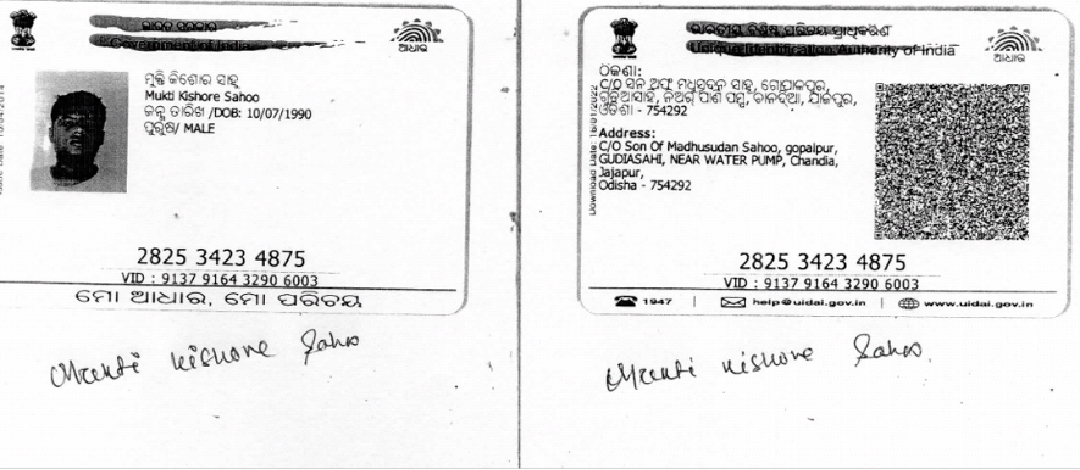 ଭାରତ ସରକାର
Government of India
ଆଧାର
ମୁକ୍ତି କିଶୋର ସାହୁ
Mukti Kishore Sahoo
ଜନ୍ମ ତାରିଖ /DOB: 10/07/1990
ପୁରୁଷ/ MALE
2825 3423 4875
VID : 9137 9164 3290 6003
ମୋ ଆଧାର, ମୋ ପରିଚୟ
Mukti Kishore Sahoo
ଭାରତୀୟ ବିଶିଷ୍ଟ ପରିଚୟ ପ୍ରାଧିକରଣ
Unique Identification Authority of India
ଆଧାର
Download Date: 16/01/2022
ଠିକଣା:
C/O ସନ ଅଫ୍ ମଧୁସୂଦନ ସାହୁ, ଗୋପାଳପୁର,
ଗୁଡିଆସାହି, ନିଅର୍ ପାଣି ପମ୍ପ, ଯାଜପୁର,
ଓଡିଶା - 754292
Address:
C/O Son Of Madhusudan Sahoo, gopalpur,
GUDIASAHI, NEAR WATER PUMP, Chandia,
Jajapur,
Odisha - 754292
2825 3423 4875
VID : 9137 9164 3290 6003
1947 | help@uidai.gov.in | www.uidai.gov.in
Mukti Kishore Sahoo